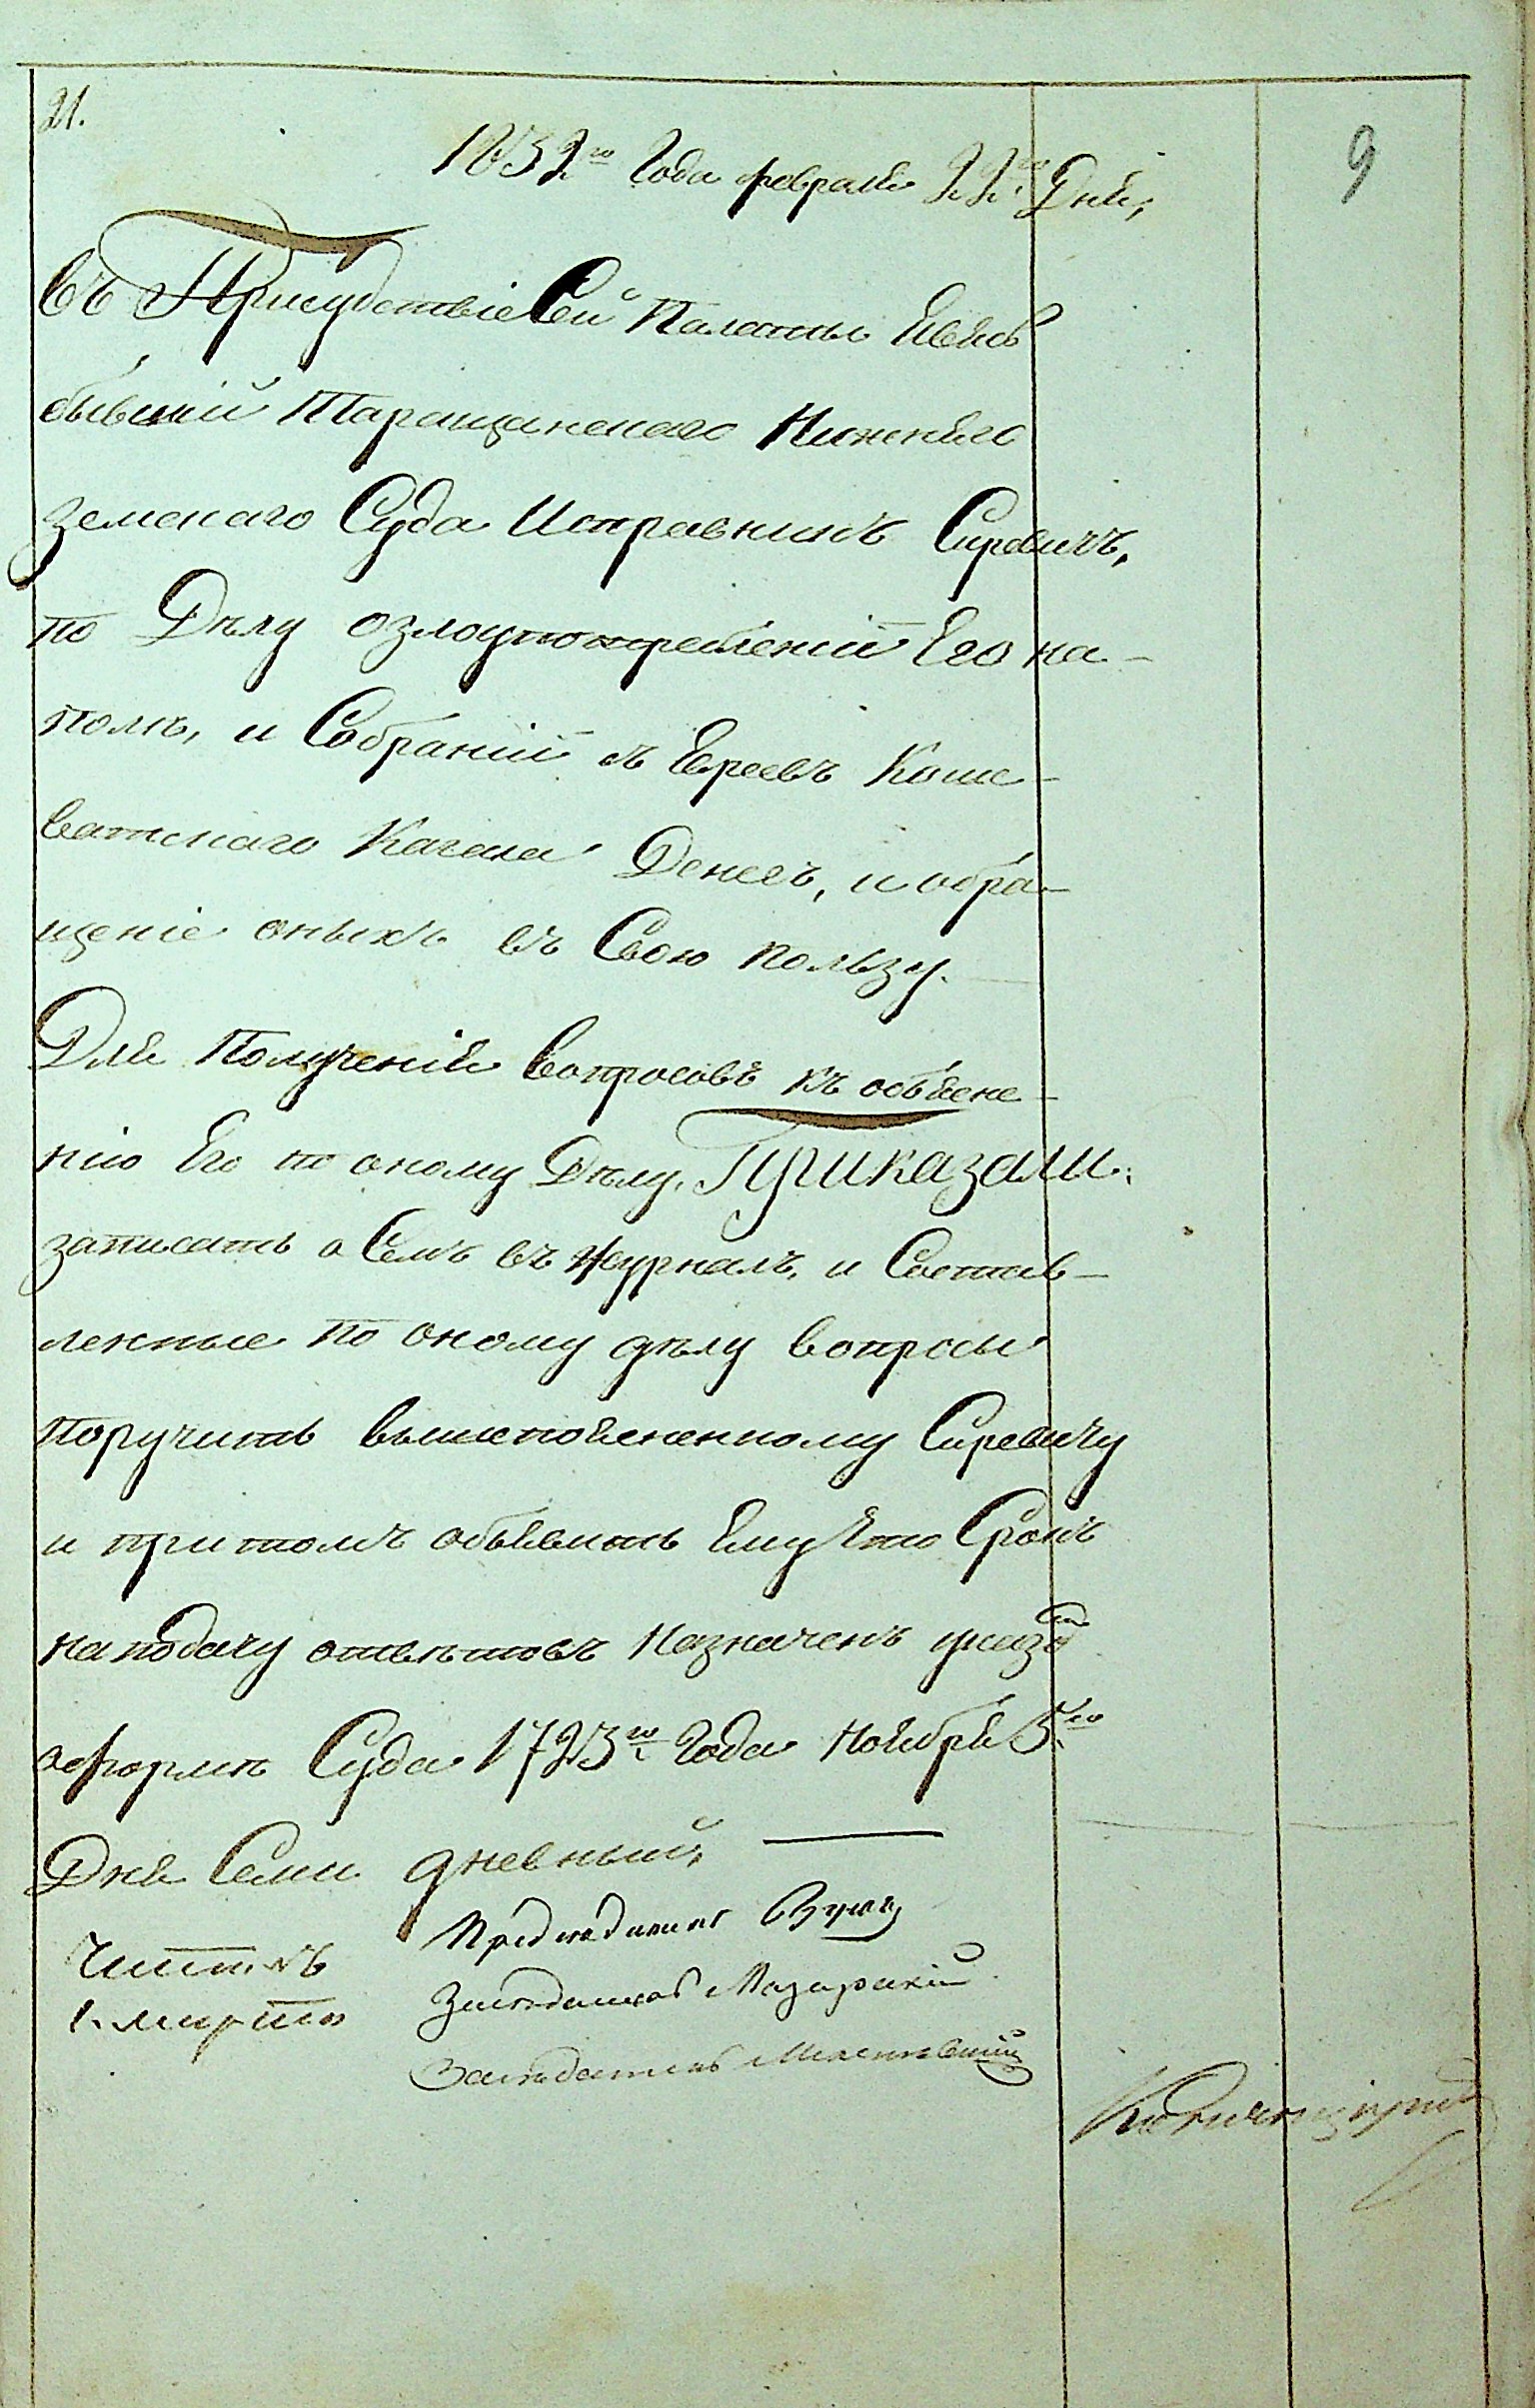 21.
9
1832го Года февраля 22го Дня,
Въ Присудствіе Сей Палаты Явясь
бывшій Таращанскаго Нижняго
Земскаго Суда Исправникъ Сиревичъ,
по Дѣлу о злоупотребленіи Его на-
полѣ, и Собраніи съ Евреевъ Коше-
ватскаго Кагала Денегъ, и обра-
щеніе оныхъ въ Свою пользу.
Для Полученія Вопросовъ къ объясне-
нію Его по оному Дѣлу, Приказали:
записать о Семъ въ Журналъ, и Состав-
ленные по оному дѣлу вопросы
поручить вышепоясненному Сиревичу
и при томъ объявить Ему что Срокъ
на подачу отвѣтовъ Назначенъ указомъ
о формѣ Суда 1723го Года Ноября 5го
Дня Семи дневный,
Предсѣдатель
Засѣдатель Мазаракій
Засѣдатель
Читалъ
1. марта